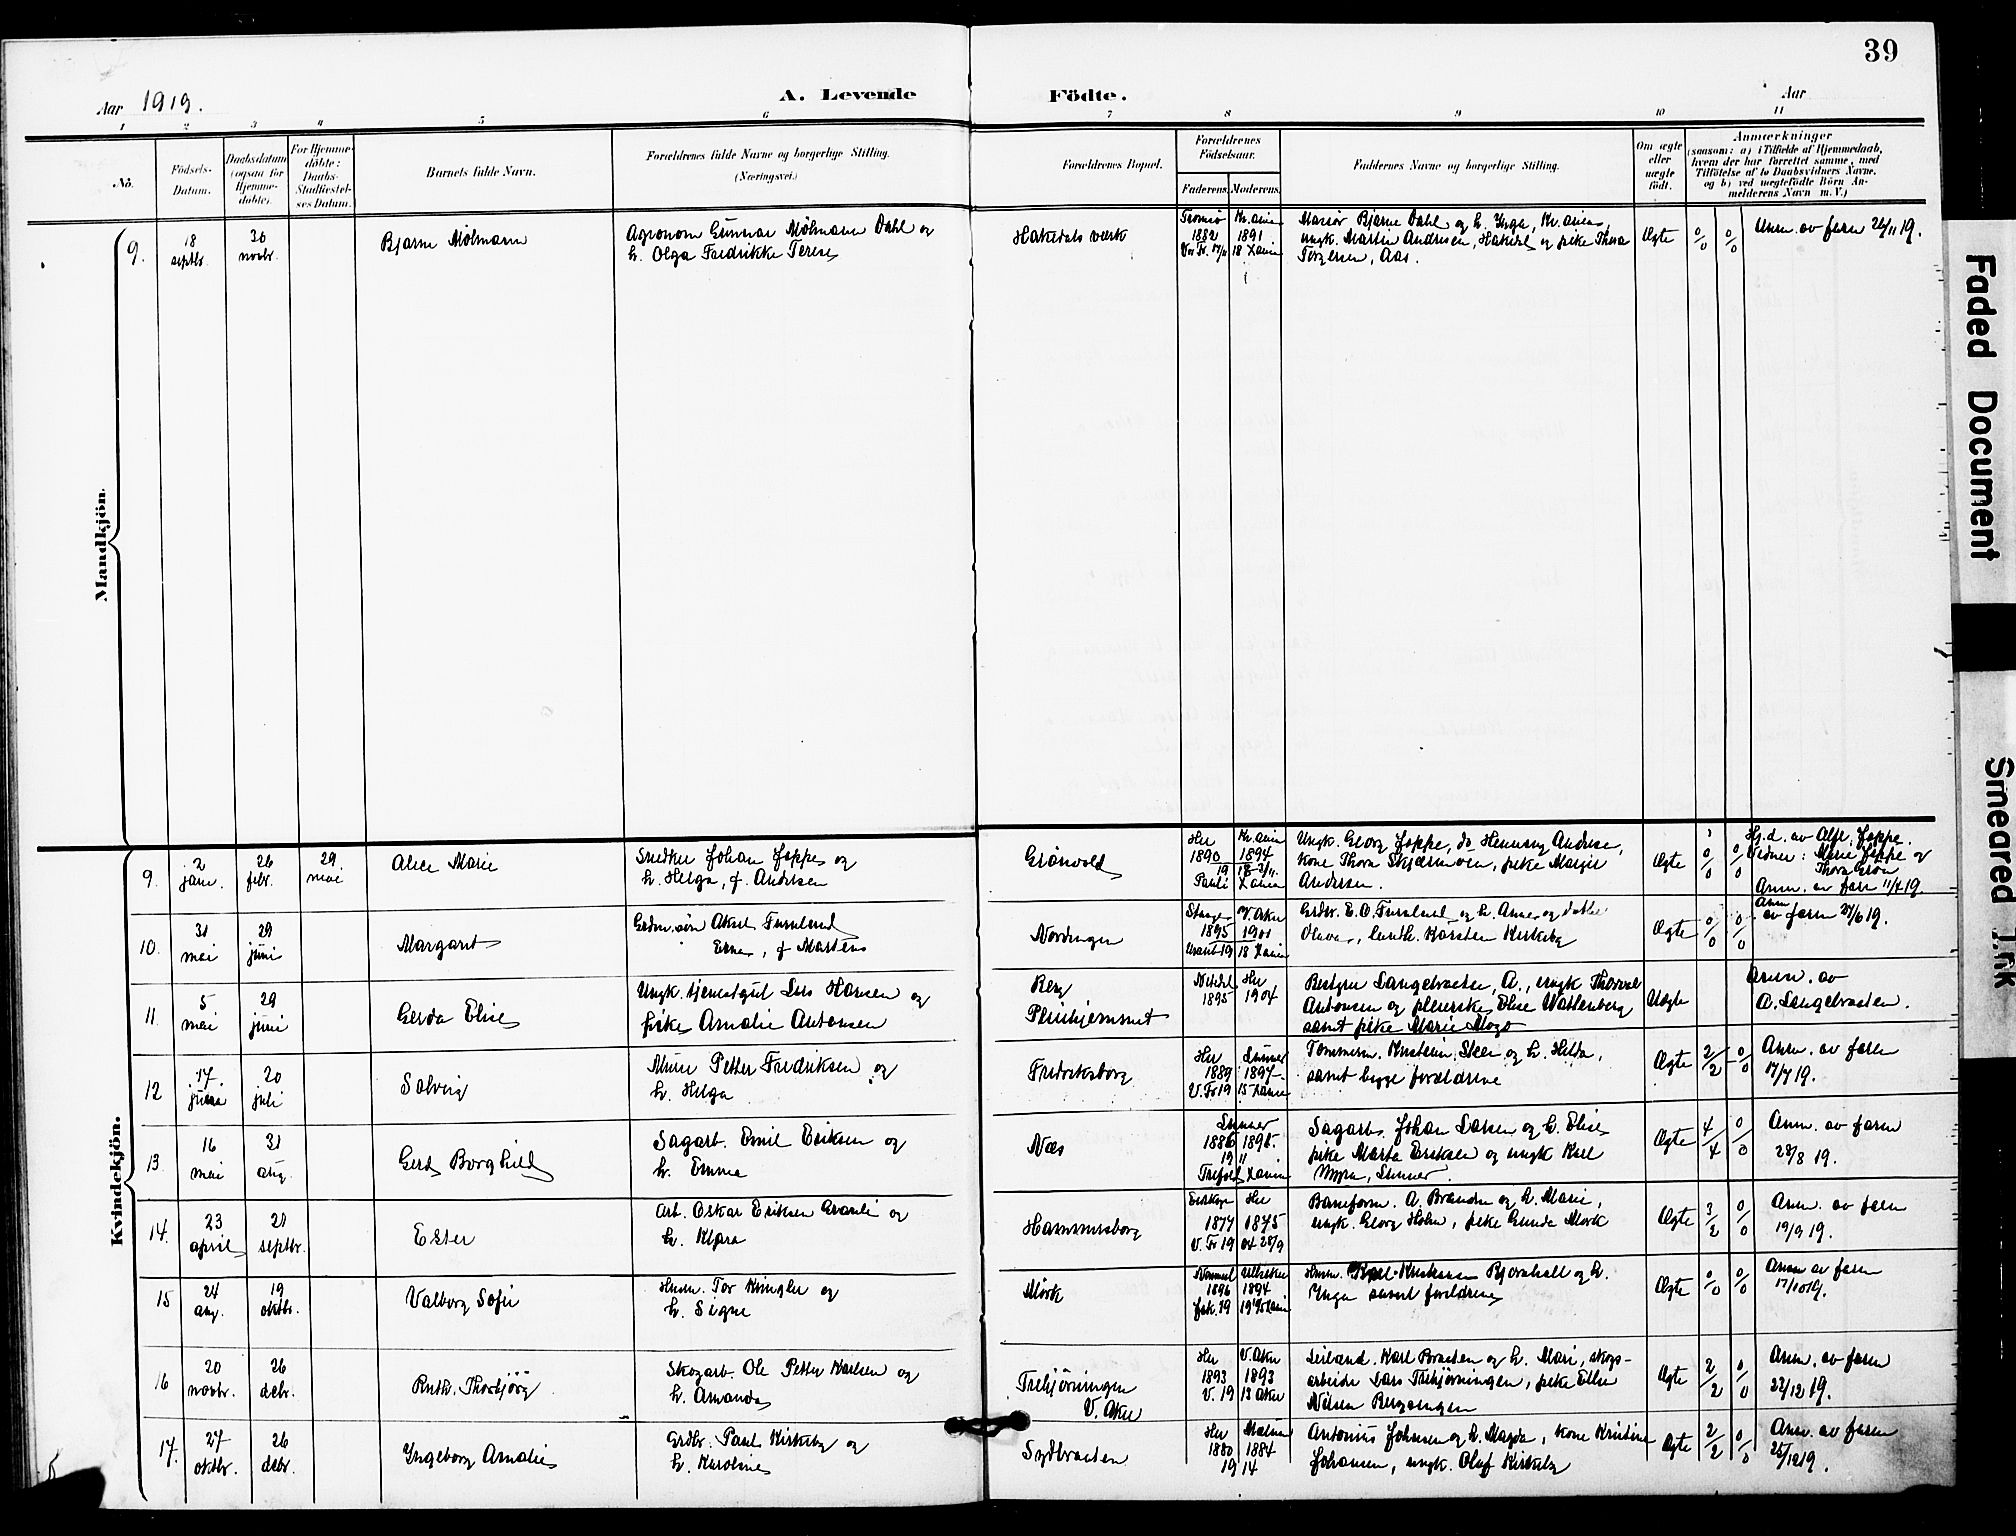 39
Aar 1919.
A. Levende Födte.
Aar
1 2 3 4 5 6 7 8 9 10 11
No.
Födsels-Datum.
Daabsdatum (ogsaa for Hjemme-døbte).
For Hjemme-døbte: Daabs-Stadfæstel-ses Datum.
Barnets fulde Navn.
Forældrenes fulde Navne og borgerlige Stilling.
(Næringsvei.)
Forældrenes Bopæl.
Forældrenes Fødselsaar.
Faderens. Moderens.
Faddernes Navne og borgerlige Stilling.
Om ægte eller uægte født.
Anmærkninger
(saasom: a) i Tilfælde af Hjemmedaab, hvem der har forrettet samme, med Tilføielse af to Daabsvidners Navne, og b) ved uægtefødte Børn An-melderens Navn m. V.)
Mandkjön.
9. 18 septbr. 30 novbr.
Bjarne Mölmann
Agronom Gunnar Mölmann Dahl og
h. Olga Fredrikke Terese
Hakedals værk
Tromsø 1882
Kr.ania 1891
Bjarne Dahl og h. Ynga, Kr.ania,
ungk. Martin Andresen, Hakedal og pike Thora
Torgersen, Aas.
Ægte
0/0 0/0
Anm. av faren 26/11 19.
Kvindekjön.
9. 2 jan. 26 febr. 29 mai
Alice Marie
Snedker Johan Joppe og
h. Helga, f. Andersen
Grönvold
Her 1890
Kr.ania 1894
Ungk. Georg Joppe, do Henning Andrese,
kone Thora Skjærmoen, pike Margit
Andersen.
Ægte
0/0 0/0
Hj.d. av Alfr. Joppe.
Vidner: Marie Joppe og
Thora Gron
Anm. av faren 11/4 19.
10. 31 mai 29 juni
Margaret
Grdm.søn Aksel Furulund
Erna, f Martens
Nordengen
Stange 1895
V. Aker 1901
Grdbr. E.O. Furulund og h. Anna og datter
Olava, Karsten Kirkeby
Ægte
0/0 0/0
Anm. av faren 24/6 19.
11. 5 mai 29 juni
Gerda Elise
Ungk. tjenestgut Lars Hansen og
pike Amalie Antonsen
Berg
Pleiehjemmet
Nitedal 1895
Her 1904
Bestyrer Langebraaten, A., ungk Thorvald
Antonsen og pleierske Elise Wattenberg
samt pike Marie Mogo
Uægte
Anm. av
A. Langebraaten.
12 17. juni 20 juli
Solveig
Murer Petter Fredriksen og
h. Helga
Fredriksborg
Her 1889 V.Fr 19
Lunner 1897 15 Zanie
Tømmerm. Kristian Steen og h. Hilda,
samt begge forældrene
Ægte
2/2 0/0
Anm. av faren
17/7 19.
13. 16 mai 31 aug.
Gerd Borghild
Sagarb. Emil Eriksen og
h. Emma
Næs
Lunner
1886 1895.
19 11
Sagarb. Johan Larsen og h. Elise
pike Marta Eriksen og ungk Karl
Myra, Lunner.
Ægte
4/4 0/0
Anm. av faren
28/8 19.
14. 23 april 21 septbr.
Ester
Arb. Oskar Eriksen Granli og
h. Klara
Hammersborg
1877 V.Fr 19
Her 1875 04 28/9
Baneform. A. Branden og h. Marie,
ungk. Georg Holm, pike Gunda Mørk
Ægte
3/2 0/0
Anm. av faren
19/9 19.
15 24 aug. 19 oktbr.
Valborg Sofie
Husm. Tor Kringler og
h. Signe
Mörk
1896
1894
Karl Kristiansen Bjørnholt og h.
Ynga samt forældrene
Ægte
0/0 0/0
Anm av faren
17/10 19.
16 20 novbr. 26 debr.
Ruth Thorbjörg
Skogarb. Ole Petter Karlsen og
h. Amanda
Trehjörningen
V. Aker
Her 1893 V. 19
V. Aker 1893 13 Aker
Karl Braaten og h. Mari, skogs-
arbeider Lars Trehjörningen, pike Ellen
Nilsen Bergsengen
Ægte
2/2 0/0
Anm. av faren
22/12 19.
17. 27 oktbr. 26 debr.
Yngeborg Amalie
Grdbr. Paul Kirkeby og
h. Karoline
Sydbraaten
Her 1880
1884
19 14
Antonius Johnsen og h. Magda, kone Kristine
Johansen, ungk. Olaf Kirkeby
Ægte
2/2 0/0
Anm. av faren
25/12 19.
Faded Document
Smeared Ink